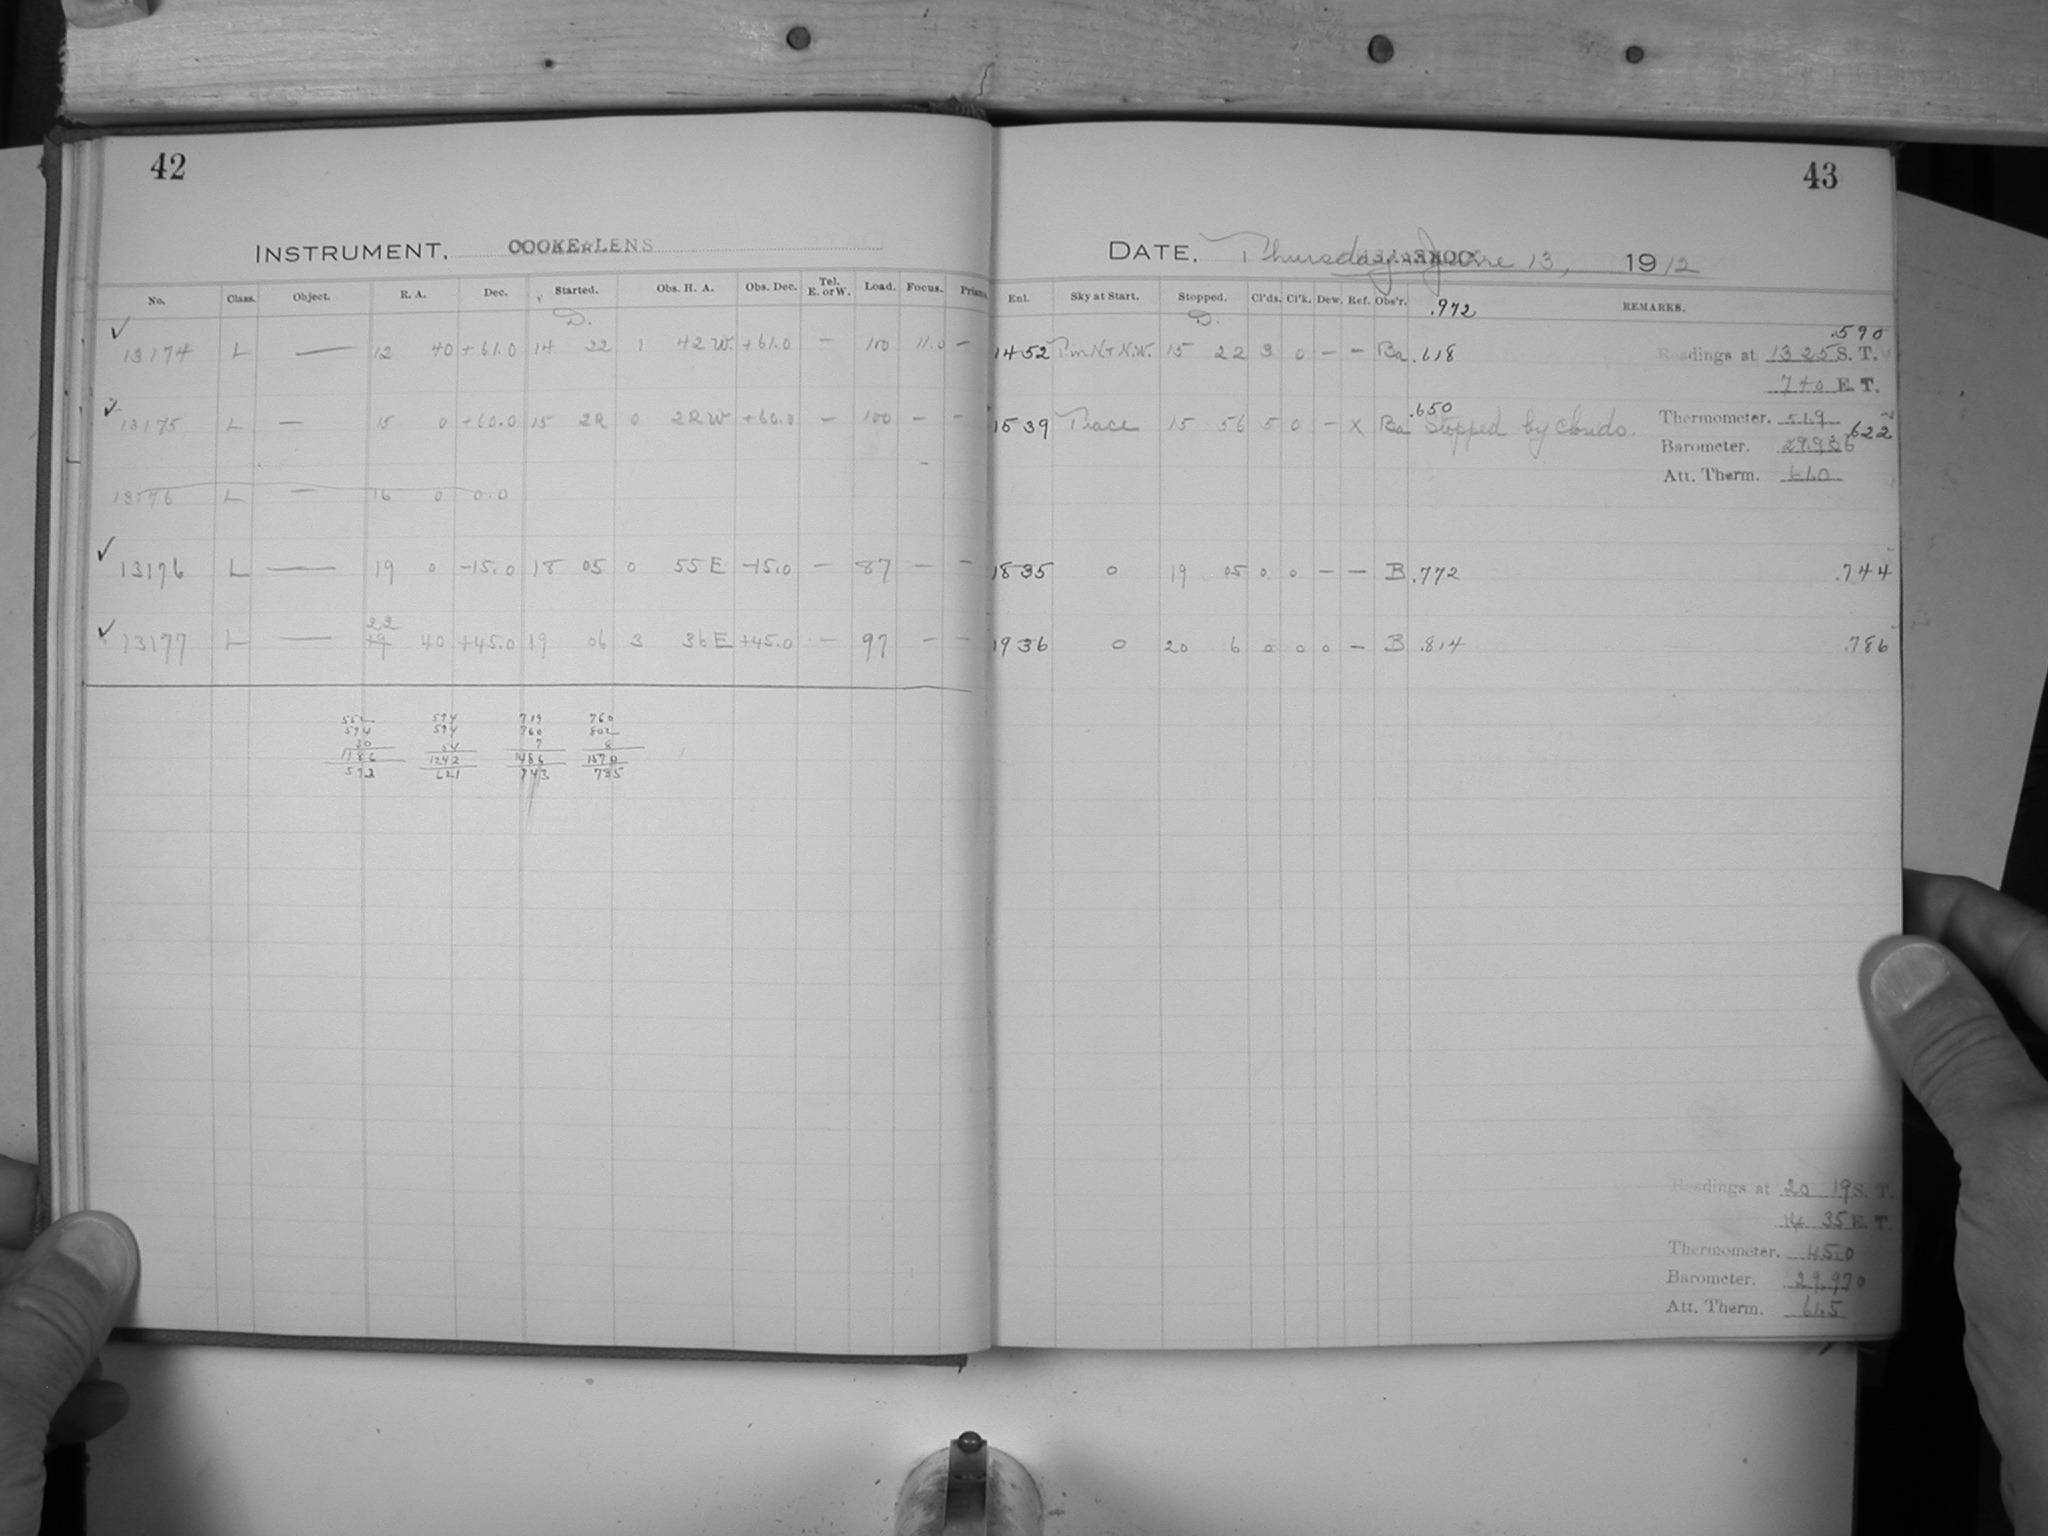 42
INSTRUMENT, COOKE LENS
No. Class. Object. R. A. Dec. Started. Obs. H. A. Obs. Dec. Tel. E. or W. Load. Focus. Prisms
D.
13174 L — 12 40 +61.0 14 22 1 42 W. +61.0 — 100 11.0 —
13175 L — 15 0 +60.0 15 28 0 28 W +60.0 — 100 — —
13176 L — 16 0 0.0
13176 L — 19 0 -15.0 18 05 0 55 E -15.0 — 87 — —
22
13177 L — 19 40 +45.0 19 06 3 36 E +45.0 — 97 — —
552 594 719 760
594 594 760 802
1186 1242 1486 1570
593 621 743 785
43
DATE, Thursday June 13, 1912
Enl. Sky at Start. Stopped. Cl'ds. Cl'k. Dew. Ref. Obs'r. .972 REMARKS.
D. .590
1452 T. in N. + N.W. 15 22 3 0 — — Ba .618 Readings at 13 25 S. T.
7 40 E. T.
.650
1539 Trace 15 56 5 0 — X Ba Stopped by clouds. Thermometer. 51.9
.622
Barometer. 29.936
Att. Therm. 61.0
1835 0 19 05 0 0 — — B .772 .744
1936 0 20 6 0 0 0 — B .814 .786
Readings at 20 19 S. T.
35 E. T.
Thermometer. 45.0
Barometer. 29.970
Att. Therm. 61.5